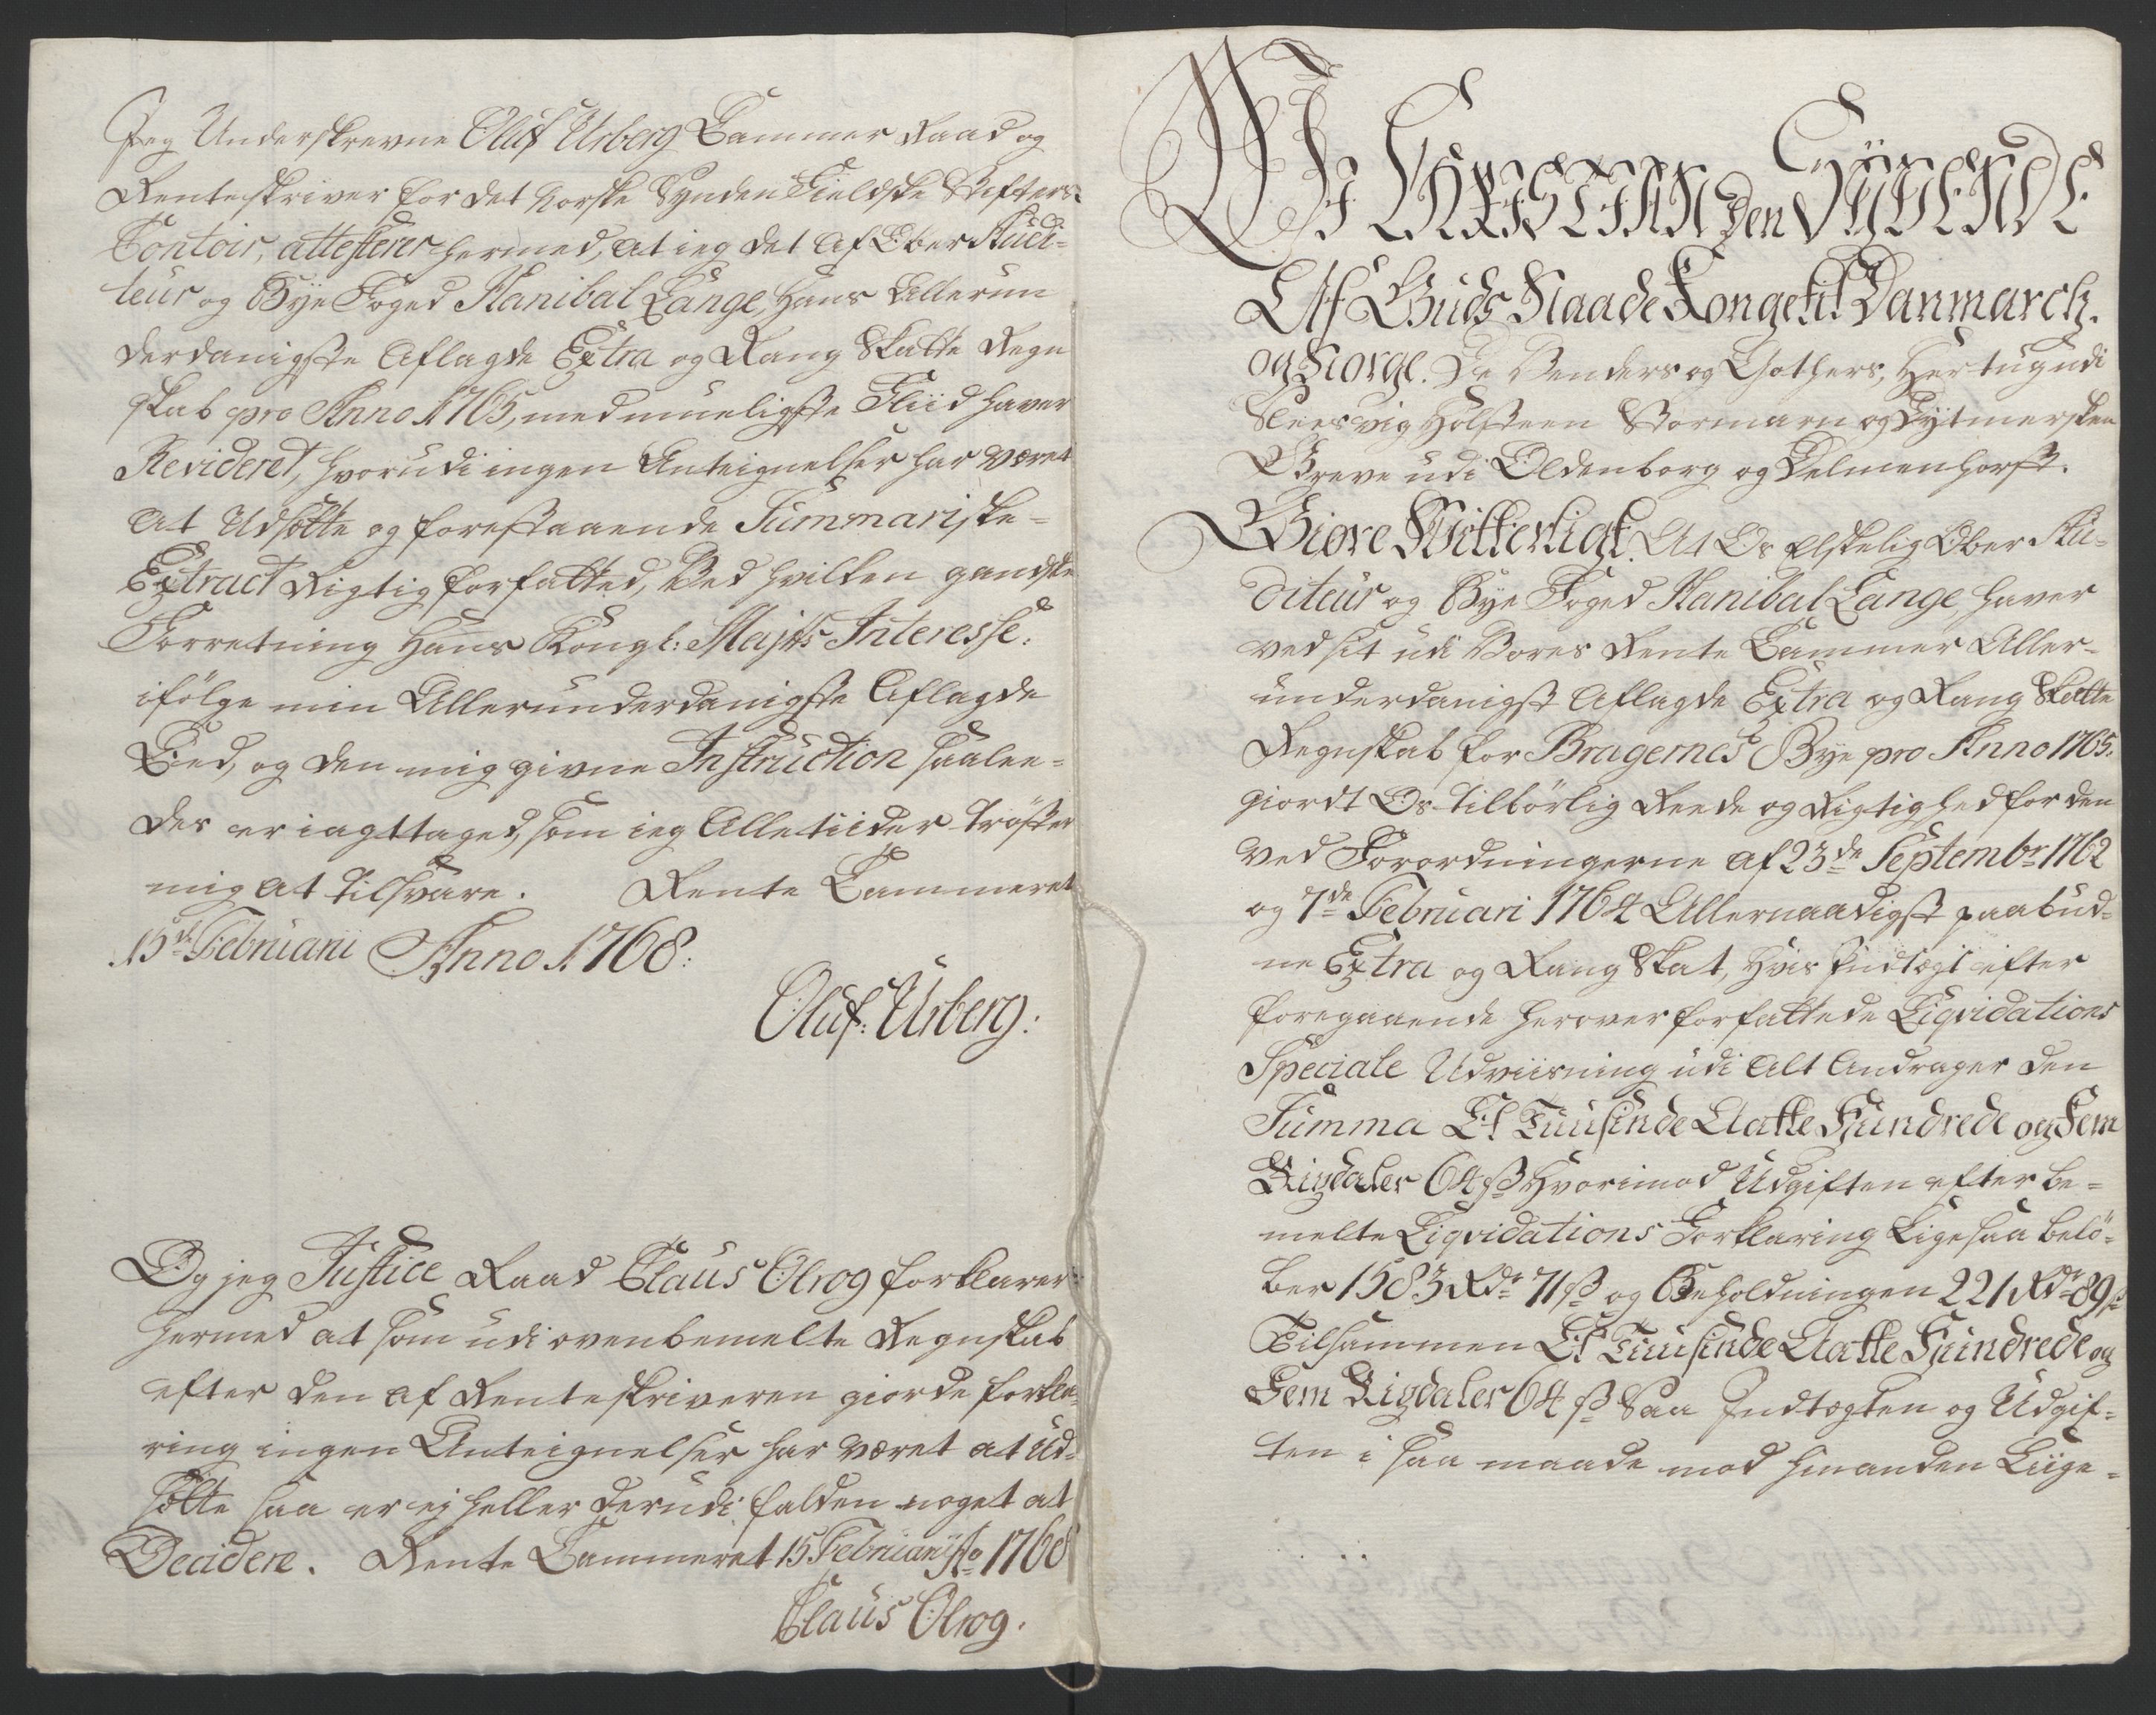 Jeg Underskrevne Oluf Urberg Cammer Raad og
Renteskriver for det Norske Synden Fieldske Stifters
Contoir, attesterer hermed, at ieg det af Ober Audi-
teur og Bye Foged Hanibal Lange, hans Allerun
derdanigste Aflagde Extra og Rang Skatte Regn
skab pro Anno 1765, med mueligste Fliid haver
Revideret, hvorudi ingen Anteignelser har været
at Udsætte og forestaaende Summariske-
Extract Rigtig forfatted, Ved hvilken gandske
Forretning Hans Kongl: Majts Interesse:
ifølge min Allerunderdanigste Aflagde
Eed, og den mig givne Instruction saalee-
des er iagttaged, som ieg Alle tiider trøster
mig at tilsvare. Rente Cammeret
15de Februarii Anno 1768:
Oluf: Urberg:
Og jeg Justice Raad Claus Olrog forklarer
hermed at som udi ovenbemelte Regnskab
efter den af Renteskriveren giorde forkla-
ring ingen Anteignelser har været at Ud-
sætte saa er ej heller derudi falden noget at
Decidere. Rente Cammeret 15 Februarij Ao 1768
Claus Olrog.
Wi CHRISTIAN den SYVENDE
Af Guds Naade Konge til Danmarch.
og Norge. De Venders og Gothers, Hertug udi
Slesvig Holsteen Stormarn og Dytmersken
Greve udi Oldenborg og Delmenhorst.
Giøre Witterligt. At Os Elskelig Ober Au-
diteur og Bye Foged Hanibal Lange, haver
ved sit udi Vores Rente Cammer Aller-
underdanigst Aflagde Extra og Rang Skatte
Regnskab for Bragernes Bye pro Anno 1765.
giordt Os tilbørlig Reede og Rigtighed for den
ved Forordningerne af 23de Septembr 1762
og 7de Februari 1764 Allernaadigst paabud-
ne Extra og Rang Skat, Hvis Indtægt efter
foregaaende herover forfattede Liqvidations
Speciale Udviisning udi Alt Andrager den
Summa Et Tuusinde Aatte Hundrede og Fem
Rigdaler 64 ß Hvorimod Udgiften efter be-
melte Liqvidations Forklaring Ligesaa belø-
ber 1583 Rdr 71 ß og Beholdningen 221 Rdr 89 ß
Tilsammen Et Tuusinde Aatte Hundrede og
Fem Rigdaler 64 ß Saa Indtægten og Udgif-
ten i saa maade mod hinanden Liige-